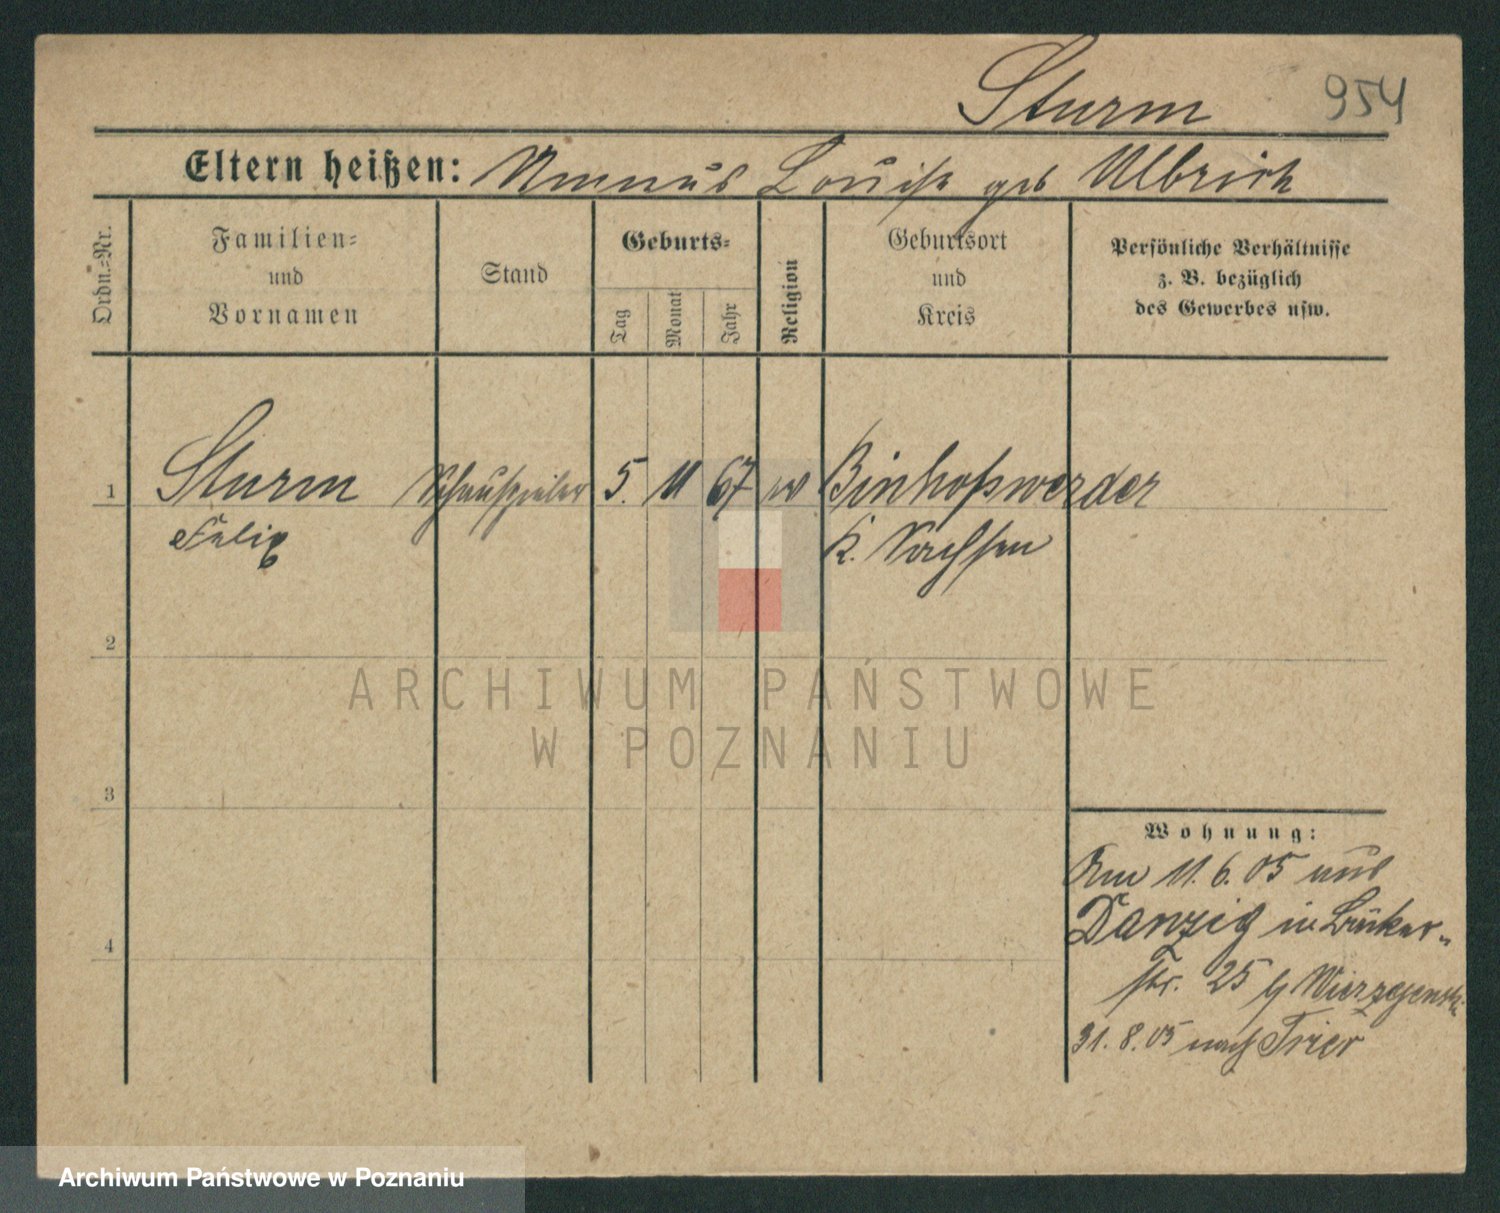 Sturm 954
Eltern heißen: Louise geb Ulbrich
Ordn.-Nr.
Familien-
und
Vornamen
Stand
Geburts-
Tag
Monat
Jahr
Religion
Geburtsort
und
Kreis
Persönliche Verhältnisse
z. B. bezüglich
des Gewerbes usw.
1 Sturm Schauspieler 5. 11 67 ev Bischofswerder
Felix K. Sachsen
2
3
4
ARCHIWUM PAŃSTWOWE
W POZNANIU
Wohnung:
Am 11.6.05 aus
Danzig in
str. 25 b
31.8.05 nach Trier
Archiwum Państwowe w Poznaniu